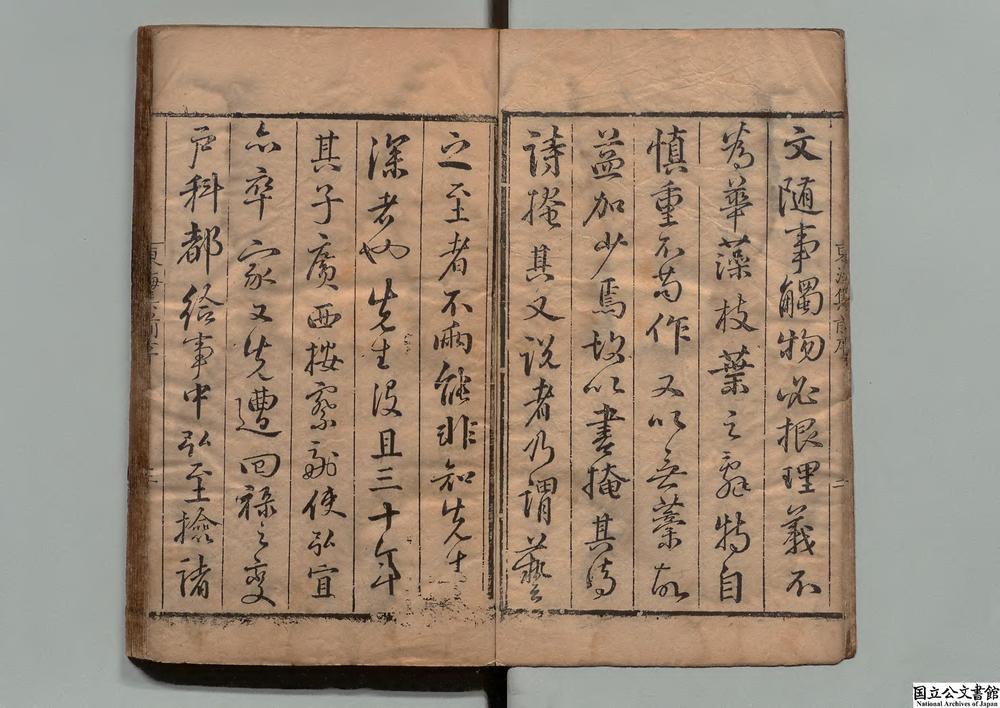 文随事觸物必根理義不
為華藻枝葉之辭特自
慎重不苟作又以無藁故
益加少焉故以書掩其詩
詩掩其文說者乃謂藝
之至者不兩能非知先生
深者也先生没且三十年
其子廣西按察副使弘宜
亦卒家又先遭回祿之變
戶科都給事中弘至撿諸
国立公文書館
National Archives of Japan